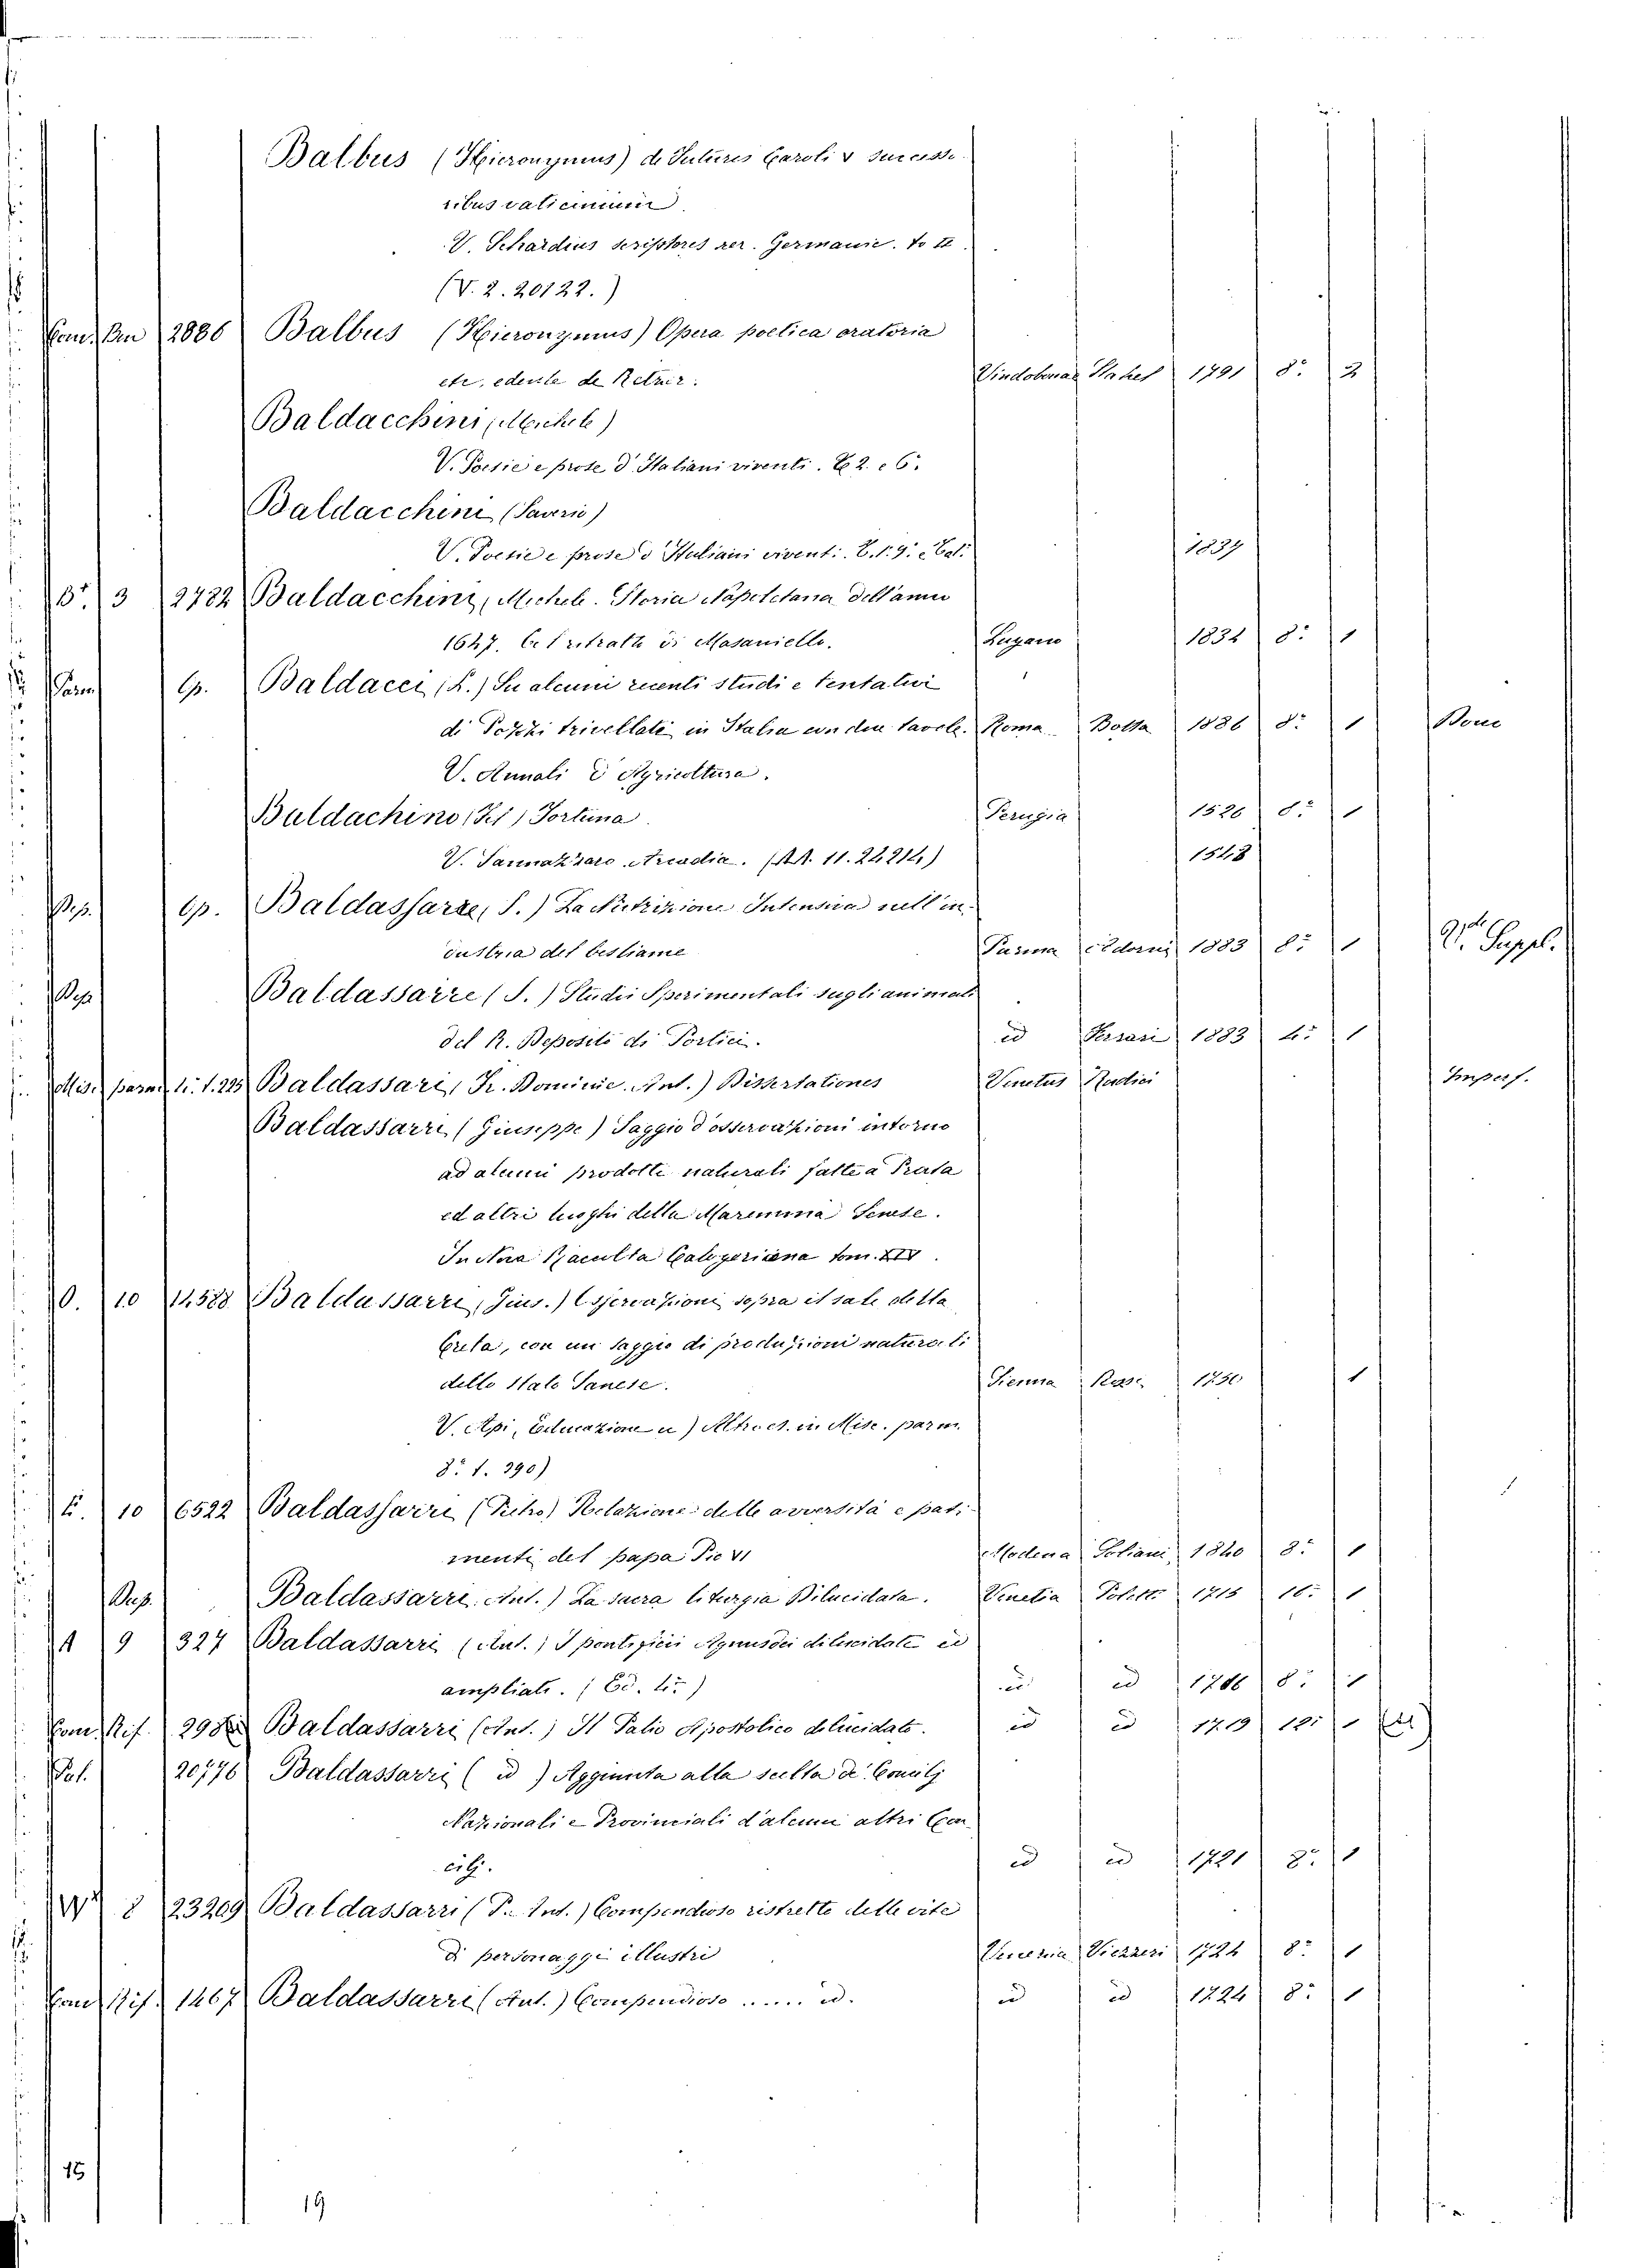 Balbus (Hieronymus) de futuris Caroli V successo-
ribus vaticinium
V. Schardius scriptores rer. Germanic. to II.
(V. 2. 20122.)
2886 Balbus (Hieronymus) Opera poetica oratoria
etc. edente de Retzer. Vindobonae Stahel 1791 8.º 2
Baldacchini (Michele)
V. Poesie e prose d'Italiani viventi. T. 2. e 6.
Baldacchini (Saverio)
V. Poesie e prose d'Italiani viventi. 1837
3 2782 Baldacchini, Michele. Storia Napoletana dell'anno
1647. Col ritratto di Masaniello. Lugano 1834 8.º 1
Parm Op. Baldacci (L.) Su alcuni recenti studi e tentativi
di Pozzi trivellati in Italia con due tavole. Roma Botta 1886 8.º 1
V. Annali d'Agricoltura.
Baldachino (Fil) Fortuna. Perugia 1526 8.º 1
V. Sannazzaro Arcadia. 1548
Dep. Op. Baldassarre, S.) La Nutrizione Intensiva nell'in-
dustria del bestiame Parma Adorni 1883 8.º 1 V. Suppl.
Dep. Baldassarre (S.) Studii Sperimentali sugli animali
del R. Deposito di Portici. id Ferrari 1883 4.º 1
Misc. parm. 4.º t. 223 Baldassari, Fr. Dominic. Ant.) Dissertationes Venetus Radici Imperf.
Baldassarri (Giuseppe) Saggio d'osservazioni intorno
ad alcuni prodotti naturali fatte a Prata
ed altri luoghi della Maremma Senese.
In Nuo Raccolta Calogeriana tom. XIV.
O. 10 11,588 Baldassarri, Gius.) Osservazioni sopra il sale della
Creta, con un saggio di produzioni naturali
dello Stato Sanese. Sienna 1750 1
V. Api, Educazione in Misc. parm.
8.º t. 390)
10 6522 Baldassarri (Pietro) Relazione delle avversità e pati-
menti del papa Pio VI Modena Soliani 1840 8.º 1
Dup. Baldassarri. Ant.) La sacra liturgia Dilucidata. Venetia Poletti 1715 1
A 9 327 Baldassarri (Ant.) I pontificii Agnusdei dilucidati ed
ampliati. (Ed. 4.ª) id id 8.º 1
Rif. Baldassarri (Ant.) Il Palio Apostolico dilucidato. id id 1719 12.º 1
Pal. 20776 Baldassarri (id) Aggiunta alla scelta de' Concilj
Nazionali e Provinciali d'alcuni altri Con-
cilj. id id 1721 8.º 1
8 23209 Baldassarri (P. Ant.) Compendioso ristretto delle vite
di personaggi illustri Venezia Viezzeri 1724 8.º 1
Rif. 1467 Baldassarri (Ant.) Compendioso ..... id. id id 1724 8.º 1
15
19